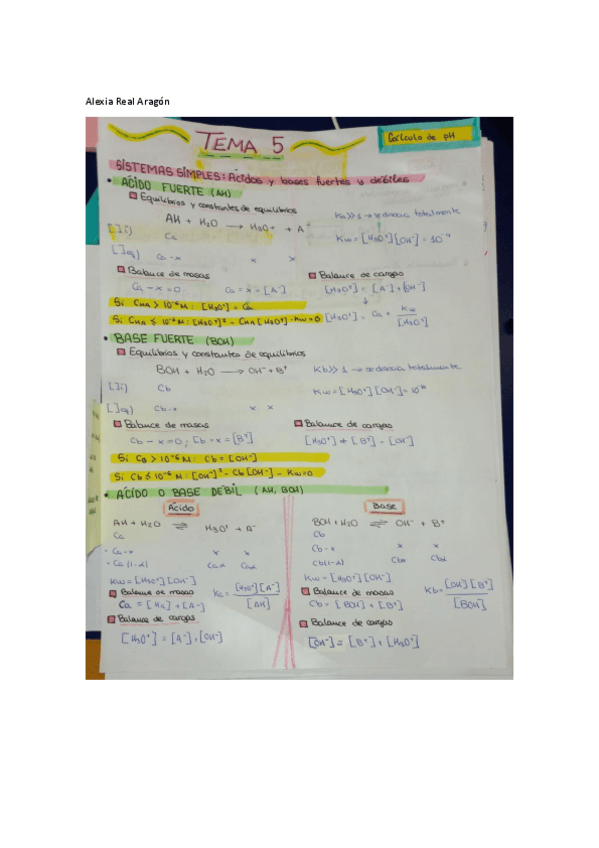 Alexia Real Aragón
TEMA 5
Cálculo de pH
SISTEMAS SIMPLES: Ácidos y bases fuertes y débiles
• ÁCIDO FUERTE (AH)
Equilibrios y constantes de equilibrios
AH + H₂O → H₃O+ + A-
Ka >> 1 → se disocia totalmente
[ ]i) Ca
Kw = [H₃O+][OH-] = 10
[ ]eq) Ca - x x x
Balance de masas
Ca - x = 0; Ca = x = [A-]
Balance de cargas
[H₃O+] = [A-] + [OH-]
↓
Si CHA > 10-6 M: [H₃O+] = Ca
[H₃O+] = Ca + Kw/[H₃O+]
Si CHA ≤ 10-6 M: [H₃O+]² - CHA [H₃O+] - Kw = 0
• BASE FUERTE (BOH)
Equilibrios y constantes de equilibrios
BOH + H₂O → OH- + B+
Kb >> 1 → se disocia totalmente
[ ]i) Cb
Kw = [H₃O+][OH-] = 10
[ ]eq) Cb - x x x
Balance de masas
Cb - x = 0; Cb = x = [B+]
Balance de cargas
[H₃O+] + [B+] = [OH-]
Si CB > 10-6 M: Cb = [OH-]
Si Cb ≤ 10-6 M: [OH-]² - Cb [OH-] - Kw = 0
• ÁCIDO O BASE DÉBIL (AH, BOH)
Ácido
AH + H₂O ⇌ H₃O+ + A-
Ca
- Ca - x x x
- Ca (1-α) Caα Caα
Kw = [H₃O+][OH-]
Ka = [H₃O+][A-]/[AH]
Balance de masas
Ca = [HA] + [A-]
Balance de cargas
[H₃O+] = [A-] + [OH-]
Base
BOH + H₂O ⇌ OH- + B+
Cb
Cb - x x x
Cb(1-α) Cbα Cbα
Kw = [H₃O+][OH-]
Kb = [OH-][B+]/[BOH]
Balance de masas
Cb = [BOH] + [B+]
Balance de cargas
[OH-] = [B+] + [H₃O+]